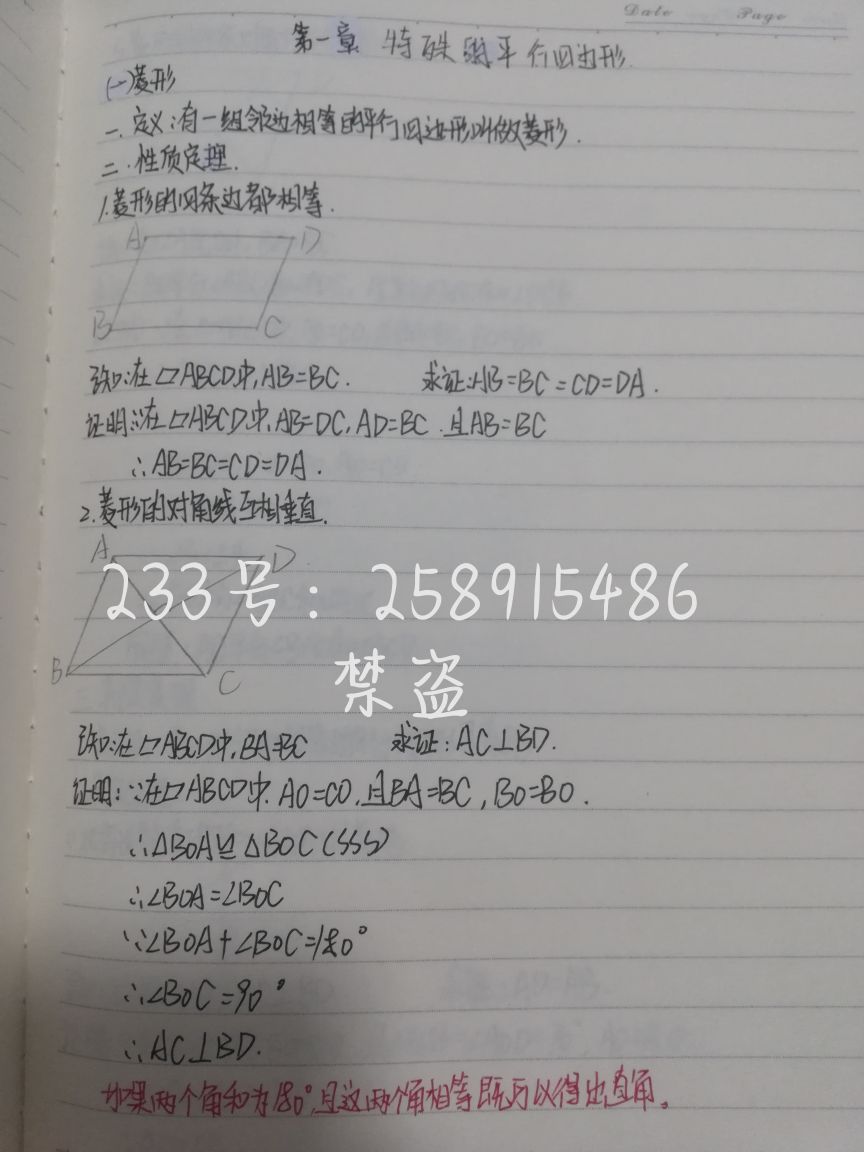 Date Page
第一章 特殊的平行四边形.
(一)菱形
一.定义:有一组邻边相等的平行四边形叫做菱形.
二.性质定理.
1.菱形的四条边都相等.
A D
B C
已知:在▱ABCD中,AB=BC. 求证:AB=BC=CD=DA.
证明:∵在▱ABCD中,AB=DC,AD=BC.且AB=BC
∴AB=BC=CD=DA.
2.菱形的对角线互相垂直.
A D
233号:258915486
B C
禁盗
已知:在▱ABCD中,BA=BC 求证:AC⊥BD.
证明:∵在▱ABCD中.AO=CO,且BA=BC,BO=BO.
∴△BOA≌△BOC(SSS)
∴∠BOA=∠BOC
∵∠BOA+∠BOC=180°
∴∠BOC=90°
∴AC⊥BD.
如果两个角和为180°,且这两个角相等既可以得出直角。